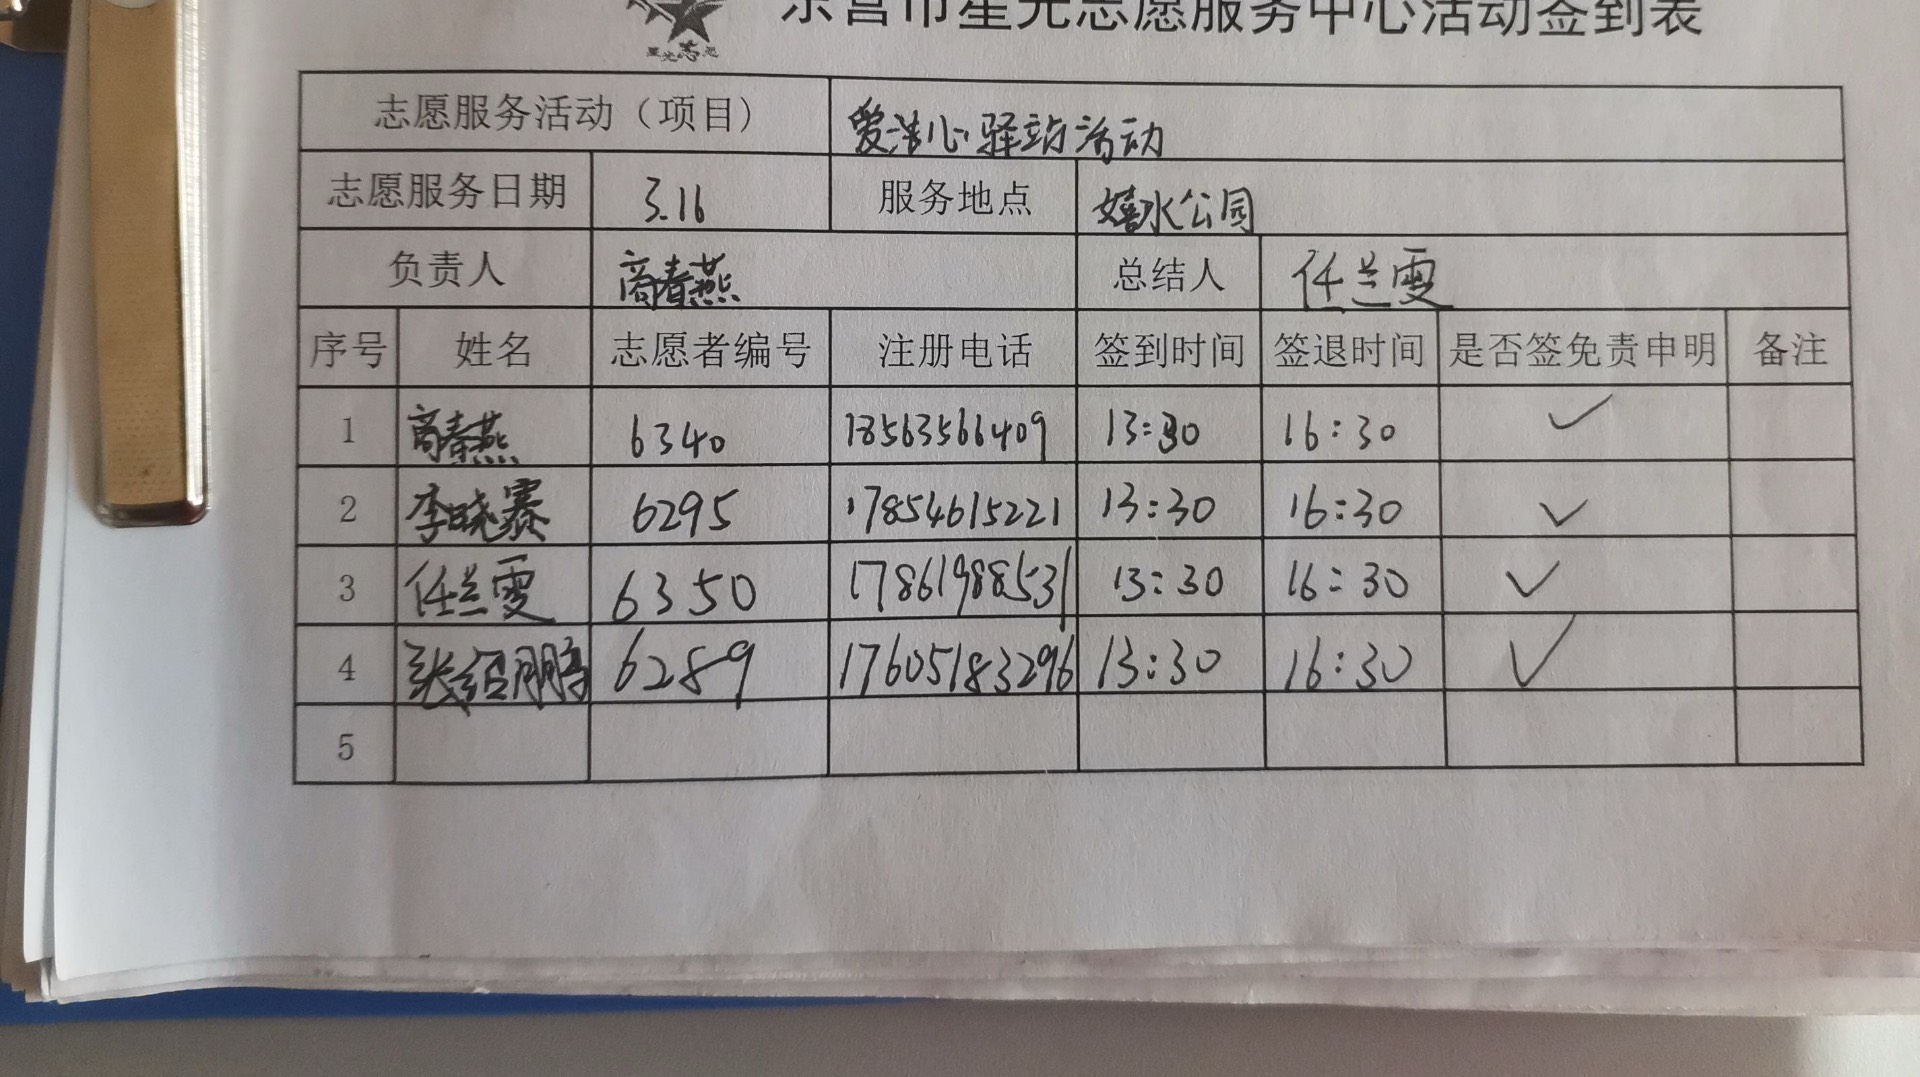 东营市星光志愿服务中心活动签到表
星光志愿
志愿服务活动（项目） 爱心驿站活动
志愿服务日期 3.16 服务地点 嬉水公园
负责人 商春燕 总结人 任兰雯
序号 姓名 志愿者编号 注册电话 签到时间 签退时间 是否签免责申明 备注
1 商春燕 6340 18563566409 13:30 16:30 ✓
2 李晓赛 6295 17854615221 13:30 16:30 ✓
3 任兰雯 6350 17861988531 13:30 16:30 ✓
4 张绍鹏 6289 17605183296 13:30 16:30 ✓
5